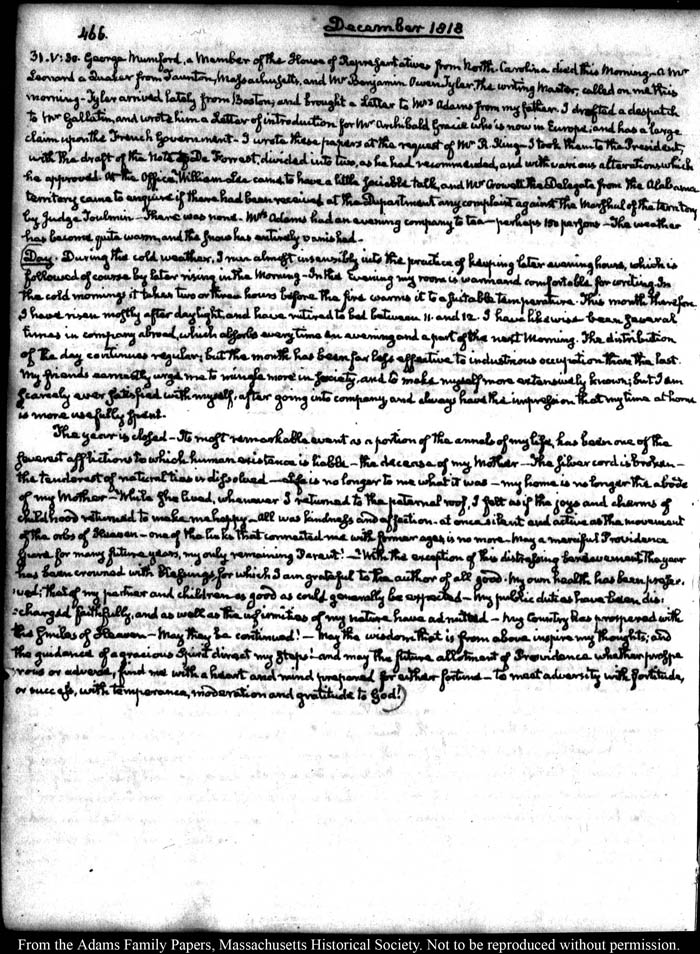 466.
December 1818
31. V: 30. George Mumford, a Member of the House of Representatives from North-Carolina died this Morning—A Mr
Leonard a Quaker from Taunton, Massachusetts, and Mr Benjamin Owen Tyler, the writing Master, called on me this
morning—Tyler arrived lately from Boston, and brought a Letter to Mrs Adams from my father. I drafted a despatch
to Mr Gallatin, and wrote him a Letter of introduction for Mr Archibald Gracie who is now in Europe, and has a large
claim upon the French Government—I wrote these papers at the request of Mr R. King—I took them to the President,
with the draft of the Note to De Forrest, divided into two, as he had recommended, and with various alterations which
he approved. At the Office, William Lee came to have a little sociable talk, and Mr Crowell the Delegate from the Alabama
territory came to enquire if there had been received at the Department any complaint against the Marshal of the territory
by Judge Toulmin—There was none. Mrs Adams had an evening company to tea—perhaps 100 persons—The weather
has become quite warm, and the snow has entirely vanished.
Day. During this cold weather, I run almost insensibly into the practice of keeping later evening hours, which is
followed of course by later rising in the Morning—In the Evening my room is warm and comfortable for writing. In
the cold mornings it takes two or three hours before the fire warms it to a suitable temperature. This month therefore
I have risen mostly after daylight, and have retired to bed between 11. and 12. I have likewise been several
times in company abroad, which absorbs every time an evening and a part of the next Morning. The distribution
of the day continues regular; but the month has been far less effective to industrious occupation than the last.
My friends earnestly urge me to mingle more in Society, and to make myself more extensively known; but I am
scarcely ever satisfied with myself, after going into company, and always have the impression that my time at home
is more usefully spent.
The year is closed—Its most remarkable event as a portion of the annals of my life, has been one of the
severest afflictions to which human existence is liable—the decease of my Mother—The silver cord is broken—
the tenderest of natural ties is dissolved—life is no longer to me what it was—my home is no longer the abode
of my Mother—While she lived, whenever I returned to the paternal roof, I felt as if the joys and charms of
childhood returned to make me happy—All was kindness and affection—at once silent and active as the movement
of the orbs of Heaven—one of the links that connected me with former ages, is no more—May a merciful Providence
spare for many future years, my only remaining Parent!—With the exception of this distressing bereavement the year
has been crowned with blessings, for which I am grateful to the author of all good. My own health has been preser-
:ved; that of my partner and children as good as could generally be expected—My public duties have been dis:
:charged faithfully, and as well as the infirmities of my nature have admitted—My Country has prospered with
the smiles of Heaven—May they be continued!—May the wisdom that is from above inspire my thoughts; and
the guidance of a gracious Spirit direct my steps! and may the future allotment of Providence whether prospe
rous or adverse, find me with a heart and mind prepared for either fortune—to meet adversity with fortitude,
or success, with temperance, moderation and gratitude to God!
From the Adams Family Papers, Massachusetts Historical Society. Not to be reproduced without permission.